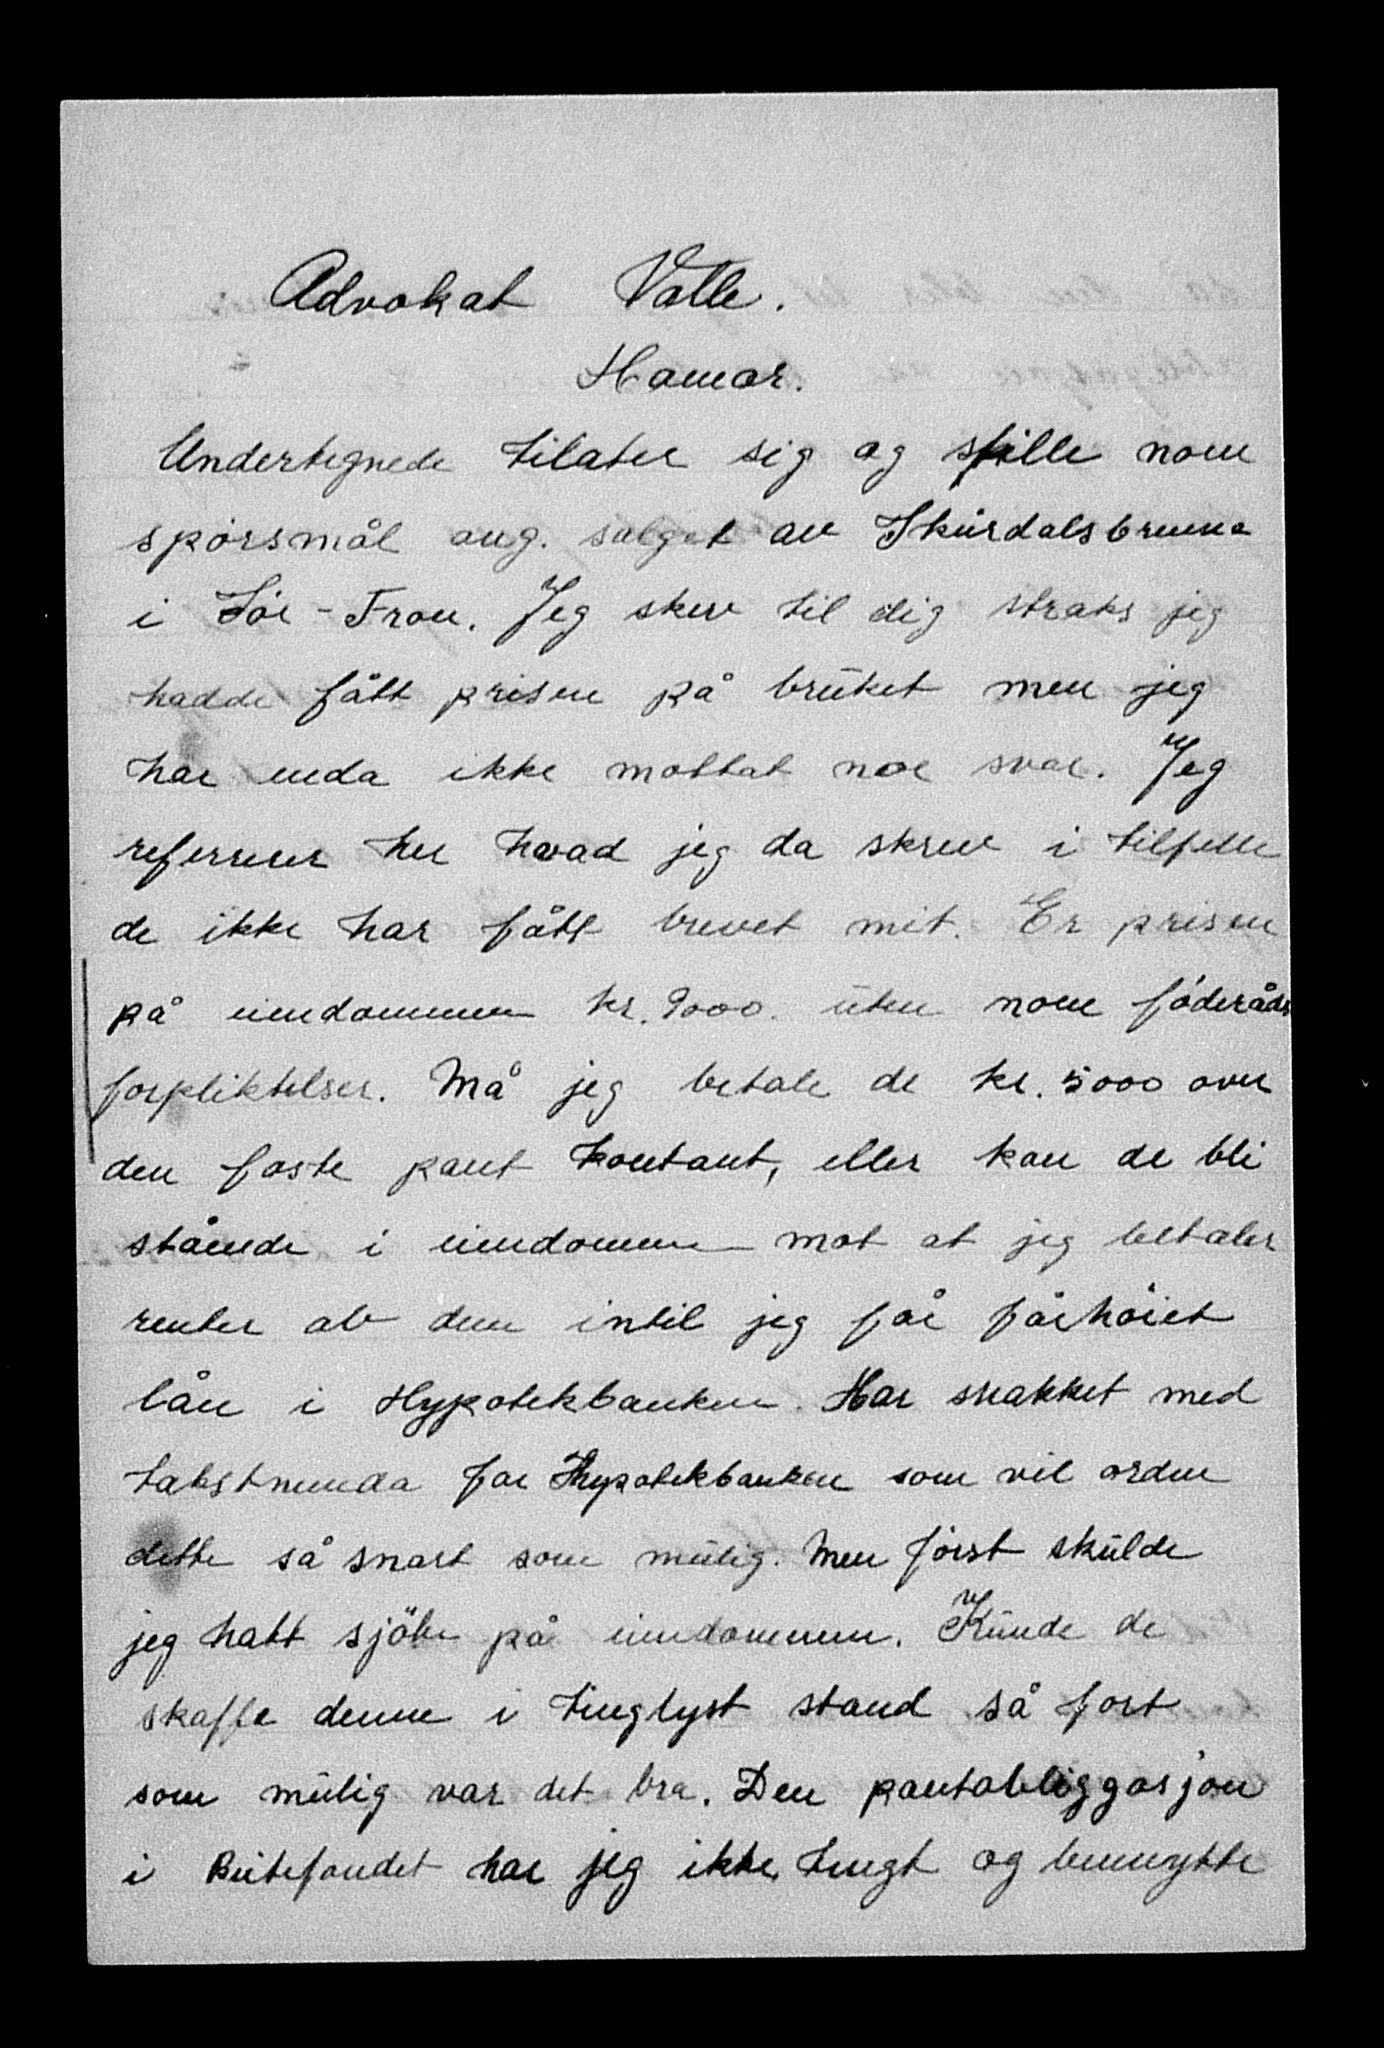 Advokat Valle.
Hamar.
Undertegnede tilater sig og stille noen
spørsmål ang. salget av Skurdalsbruna
i Sør-Fron. Jeg skrev til dig straks jeg
hadde fått prisen på bruket men jeg
har enda ikke mottat noe svar. Jeg
refererer her hvad jeg da skrev i tilfelle
de ikke har fått brevet mit. Er prisen
på eiendommen kr. 9000. uten noen föderåds
forpliktelser. Må jeg betale de kr. 5000 over
den faste pant kontant, eller kan de bli
stående i eiendommen mot at jeg betaler
renter av dem intil jeg får fårhöiet
lån i Hypotekbanken. Har snakket med
takstmenda for Hypotekbanken som vil orden
dette så snart som mulig. Men först skulde
jeg hatt sjöte på eiendommen. Kunde de
skaffe denne i tinglyst stand så fort
som mulig var det bra. Den pantobliggasjon
i Beitefondet har jeg ikke tengt og benuytte